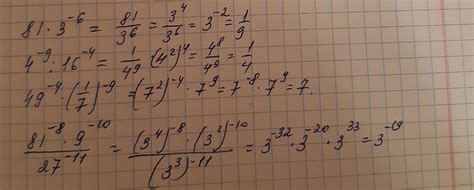 81 · 3⁻⁶ = 81/3⁶ = 3⁴/3⁶ = 3⁻² = 1/9
4⁻⁹ : 16⁻⁴ = 1/4⁹ · (4²)⁴ = 4⁸/4⁹ = 1/4
49⁻⁴ · (1/7)⁻⁹ = (7²)⁻⁴ · 7⁹ = 7⁻⁸ · 7⁹ = 7.
81⁻⁸ · 9⁻¹⁰ / 27⁻¹¹ = (3⁴)⁻⁸ · (3²)⁻¹⁰ / (3³)⁻¹¹ = 3⁻³² · 3⁻²⁰ · 3³³ = 3⁻¹⁹